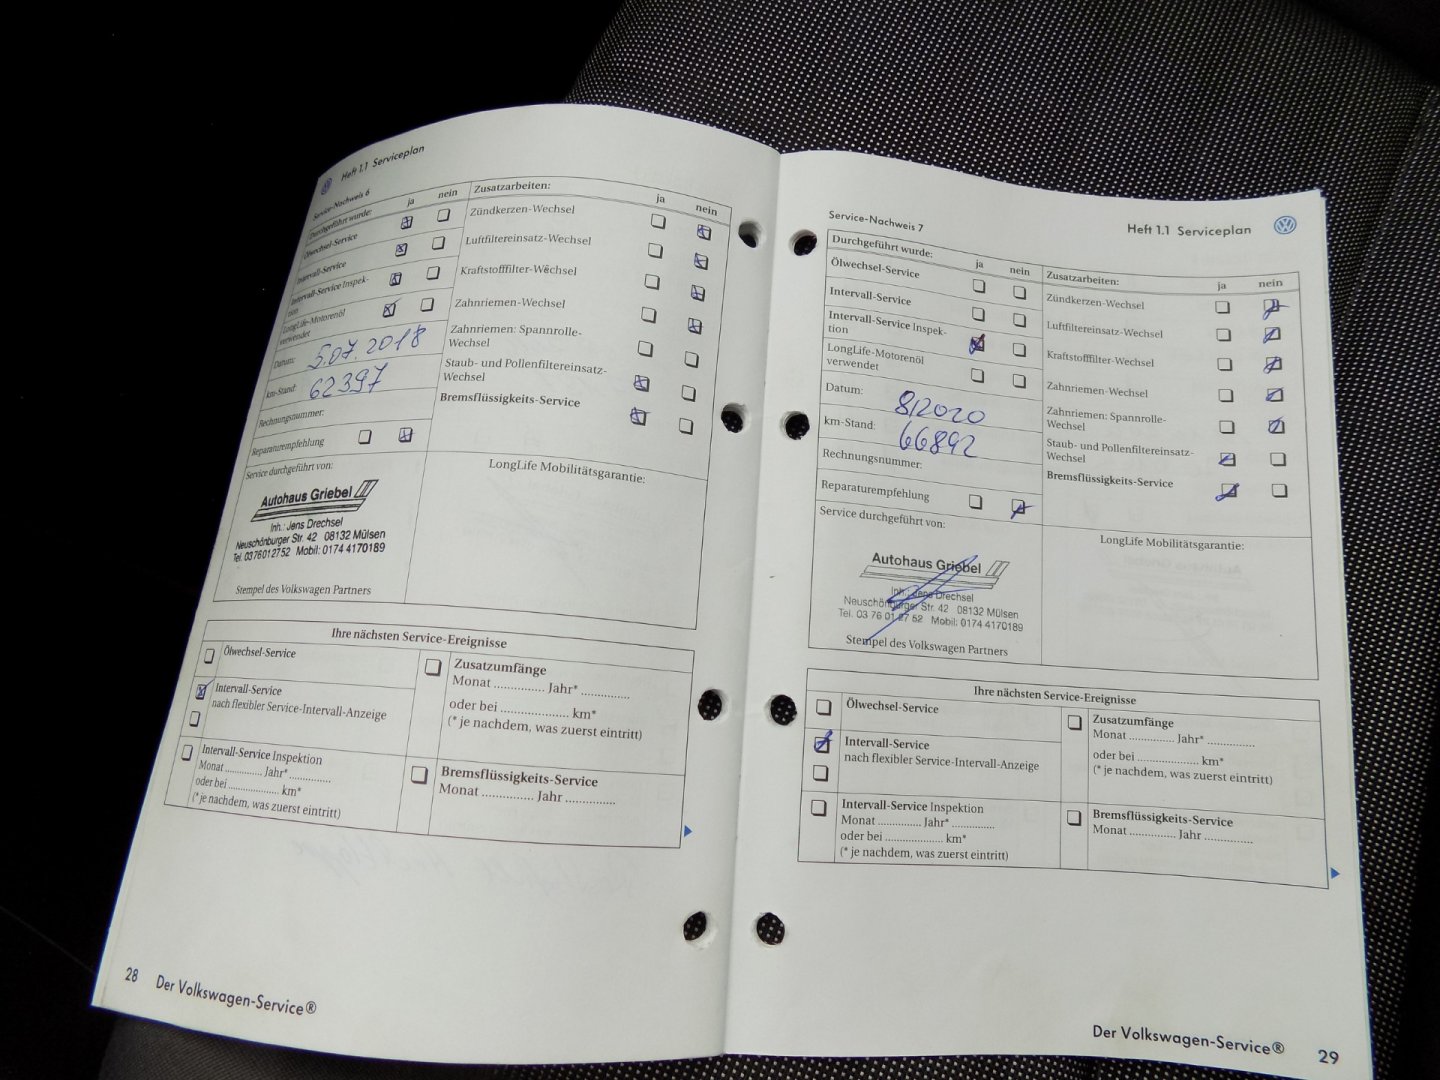 Heft 1.1 Serviceplan
Service-Nachweis 6
Durchgeführt wurde: ja nein
Ölwechsel-Service
Intervall-Service
Intervall-Service Inspek-
tion
LongLife-Motorenöl
verwendet
Datum: 5.07.2018
km-Stand: 62397
Rechnungsnummer:
Reparaturempfehlung
Zusatzarbeiten: ja nein
Zündkerzen-Wechsel
Luftfiltereinsatz-Wechsel
Kraftstofffilter-Wechsel
Zahnriemen-Wechsel
Zahnriemen: Spannrolle-
Wechsel
Staub- und Pollenfiltereinsatz-
Wechsel
Bremsflüssigkeits-Service
Service durchgeführt von:
Autohaus Griebel
Inh.: Jens Drechsel
Neuschönburger Str. 42 08132 Mülsen
Tel. 0376012752 Mobil: 0174 4170189
Stempel des Volkswagen Partners
LongLife Mobilitätsgarantie:
Ihre nächsten Service-Ereignisse
Ölwechsel-Service
Intervall-Service
nach flexibler Service-Intervall-Anzeige
Intervall-Service Inspektion
Monat ............. Jahr* ..............
oder bei .................... km*
(* je nachdem, was zuerst eintritt)
Zusatzumfänge
Monat .............. Jahr* ..............
oder bei .................... km*
(* je nachdem, was zuerst eintritt)
Bremsflüssigkeits-Service
Monat .............. Jahr ..............
28 Der Volkswagen-Service®
Service-Nachweis 7
Heft 1.1 Serviceplan
Durchgeführt wurde: ja nein
Ölwechsel-Service
Intervall-Service
Intervall-Service Inspek-
tion
LongLife-Motorenöl
verwendet
Datum: 8/2020
km-Stand: 66892
Rechnungsnummer:
Reparaturempfehlung
Zusatzarbeiten: ja nein
Zündkerzen-Wechsel
Luftfiltereinsatz-Wechsel
Kraftstofffilter-Wechsel
Zahnriemen-Wechsel
Zahnriemen: Spannrolle-
Wechsel
Staub- und Pollenfiltereinsatz-
Wechsel
Bremsflüssigkeits-Service
Service durchgeführt von:
Autohaus Griebel
Inh.: Jens Drechsel
Neuschönburger Str. 42 08132 Mülsen
Tel. 03 76 01 27 52 Mobil: 0174 4170189
Stempel des Volkswagen Partners
LongLife Mobilitätsgarantie:
Ihre nächsten Service-Ereignisse
Ölwechsel-Service
Intervall-Service
nach flexibler Service-Intervall-Anzeige
Intervall-Service Inspektion
Monat .............. Jahr* ..............
oder bei .................... km*
(* je nachdem, was zuerst eintritt)
Zusatzumfänge
Monat .............. Jahr* ..............
oder bei .................... km*
(* je nachdem, was zuerst eintritt)
Bremsflüssigkeits-Service
Monat .............. Jahr ..............
Der Volkswagen-Service® 29